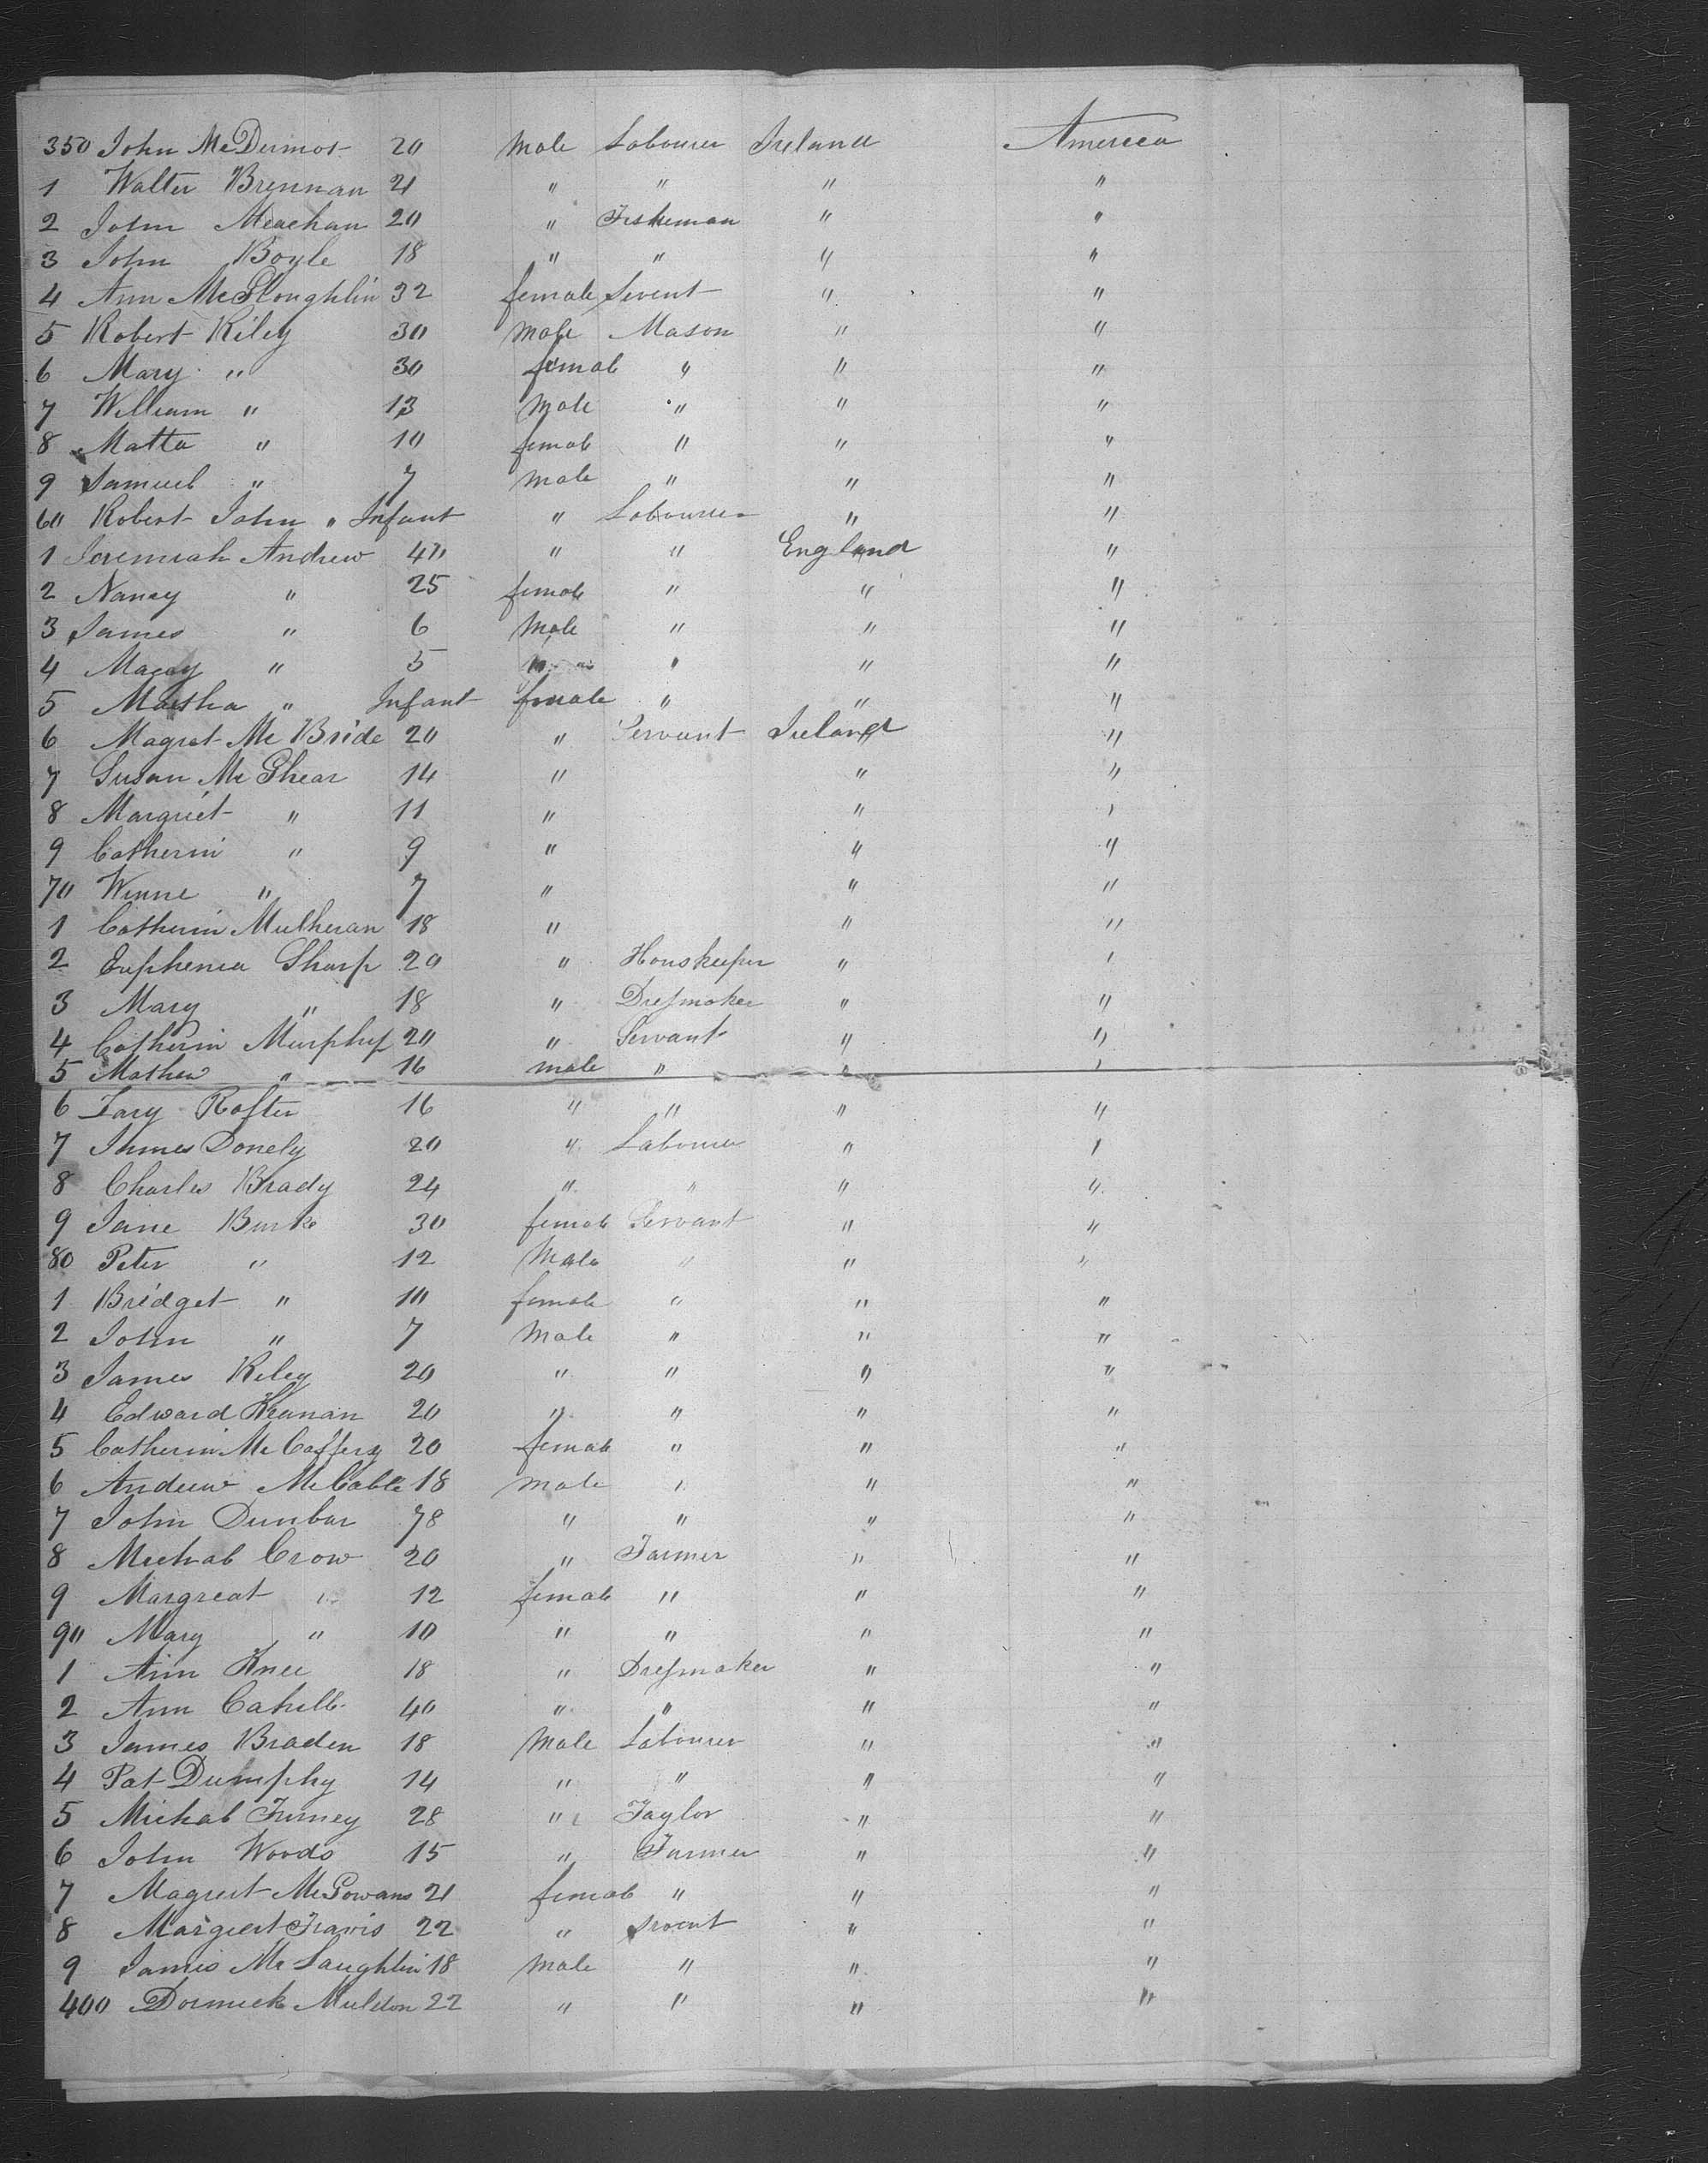 350 John McDermot 20 Male Labourer Ireland America
1 Walter Brennan 21 " " " "
2 John Meachan 20 " Fisheman " "
3 John Boyle 18 " " " "
4 Ann McGloughlin 32 female Servent " "
5 Robert Riley 30 Male Mason " "
6 Mary " 30 female " " "
7 William " 13 Male " " "
8 Matta " 10 female " " "
9 Samuel " 7 Male " " "
60 Robert John " Infant " Labourer " "
1 Jeremiah Andrew 40 " " England "
2 Nancy " 25 female " " "
3 James " 6 Male " " "
4 " 5 " " "
5 Martha " Infant female " " "
6 Magret Mc Bride 20 " Servant Ireland "
7 Susan Mc Ghear 14 " " "
8 Margriet " 11 " " "
9 Catherin " 9 " " "
70 Winne " 7 " " "
1 Catherin Mulheran 18 " " "
2 Euphenia Sharp 20 " Houskeeper " "
3 Mary " 18 " Dressmaker " "
4 Catherin Murphy 20 " Servant " "
5 Mathew " 16 male " " "
6 Rafter 16 " " " "
7 James Donely 20 " Labourer " "
8 Charles Brady 24 " " " "
9 Jane Burke 30 female Servant " "
80 Peter " 12 Male " " "
1 Bridget " 10 female " " "
2 John " 7 Male " " "
3 James Riley 20 " " " "
4 Edward Keanan 20 " " " "
5 Catherin Mc Caffery 20 female " " "
6 Andrew McCable 18 male " " "
7 John Dunbar 78 " " " "
8 Michal Crow 20 " Farmer " "
9 Margreat " 12 female " " "
90 Mary " 10 " " " "
1 Ann Knee 18 " Dressmaker " "
2 Ann Cahill 40 " " " "
3 James Braden 18 Male Labourer " "
4 Pat Dumphy 14 " " " "
5 Michal Furney 28 " Taylor " "
6 John Woods 15 " Farmer " "
7 Magreet McGowans 21 female " " "
8 Margreet Travis 22 " srvent " "
9 James Mc Laughlin 18 Male " " "
400 Dormick Muldon 22 " " " "